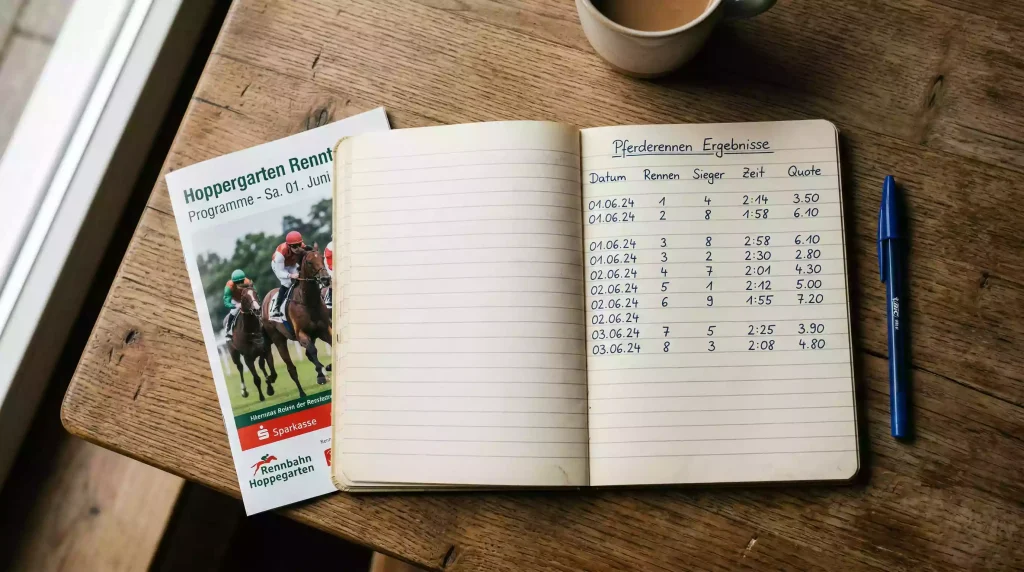 Hoppergarten Rennt
Programme - Sa. 01. Juni
Sparkasse
Rennbahn
Hoppegarten
Pferderennen Ergebnisse
Datum Rennen Sieger Zeit Quote
01.06.24 1 4 2:14 3.50
01.06.24 2 8 1:58 6.10
01.06.24 3 8 2:58 6.10
01.06.24 3 2 2:30 2.80
02.06.24 4 7 2:01 4.30
02.06.24 5 1 2:12 5.00
02.06.24 6 9 1:55 7.20
02.06.24
03.06.24 7 5 2:25 3.90
03.06.24 8 3 2:08 4.80